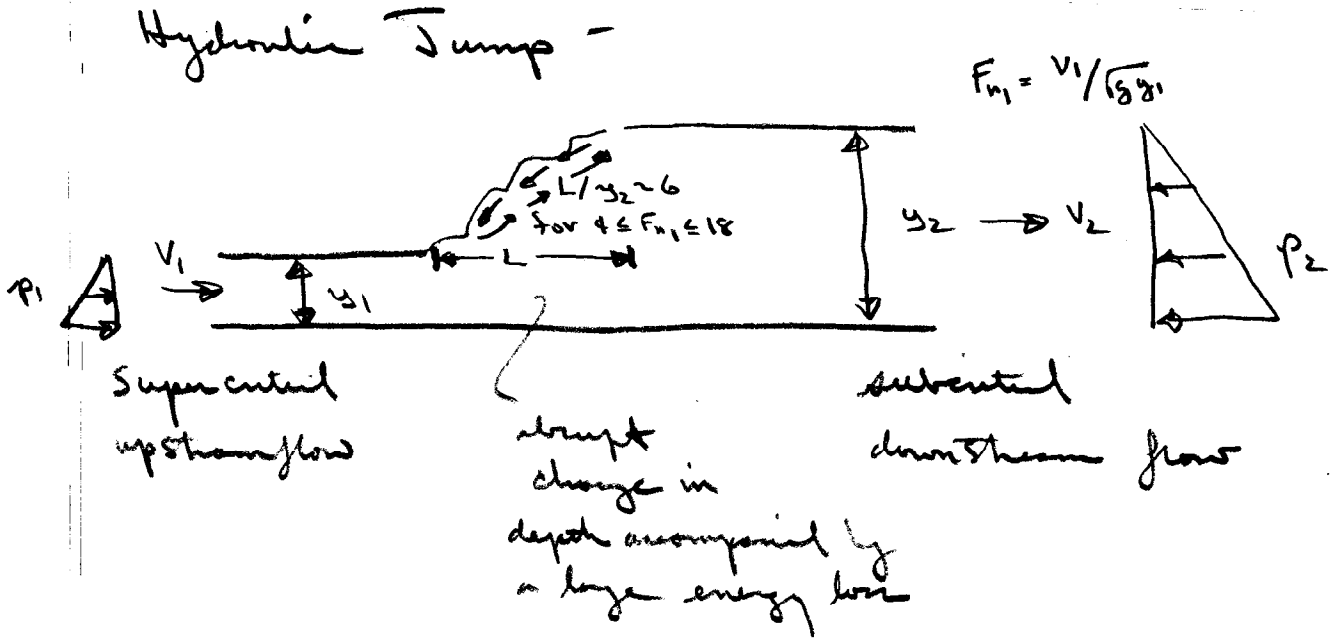 Hydraulic Jump -
Fn1 = V1/√gy1
L/y2 ~ 6
for 4 ≤ Fn1 ≤ 18
p1
V1
y1
L
y2
V2
p2
Supercritical
upstream flow
abrupt
change in
depth accompanied by
a large energy loss
subcritical
downstream flow